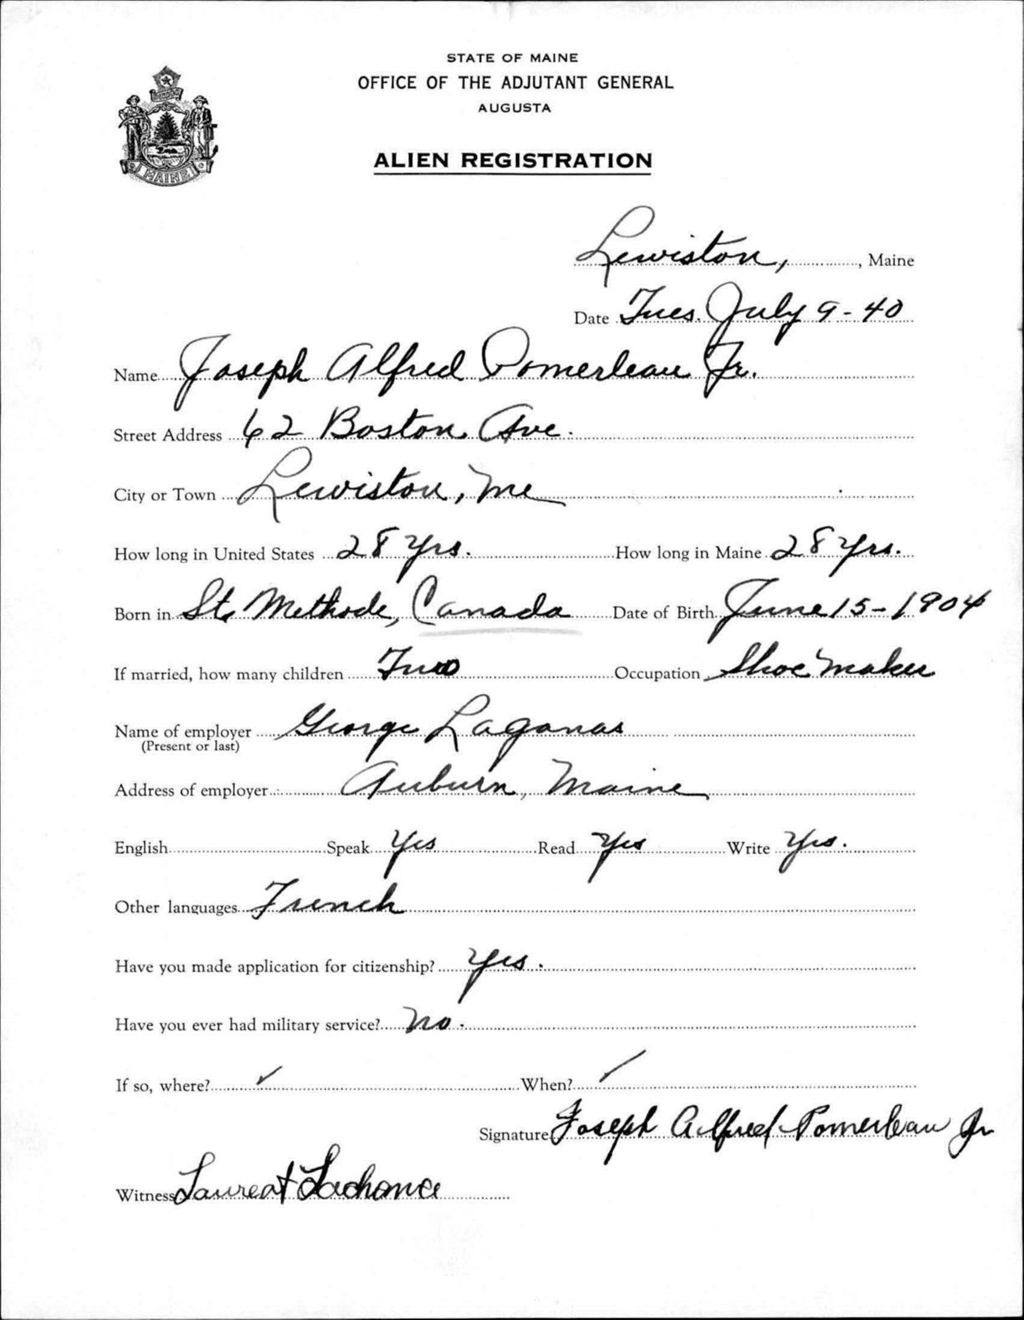 STATE OF MAINE
OFFICE OF THE ADJUTANT GENERAL
AUGUSTA
ALIEN REGISTRATION
MAINE
Lewiston, , Maine
Date Tues. July 9-40
Name Joseph Alfred Pomerleau Jr.
Street Address 62 Boston Ave.
City or Town Lewiston, Me
How long in United States 28 Yrs. How long in Maine 28 Yrs.
Born in St. Methode, Canada Date of Birth June 15-1904
If married, how many children Two Occupation Shoe Maker
Name of employer George Laganas
(Present or last)
Address of employer Auburn, Maine
English Speak Yes Read Yes Write Yes.
Other languages French
Have you made application for citizenship? Yes.
Have you ever had military service? No.
If so, where? ✓ When? ✓
Signature Joseph Alfred Pomerleau Jr
Witness Laureat Lachance